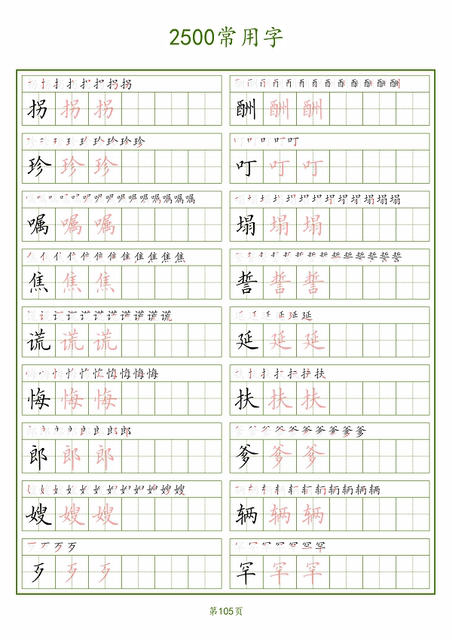 2500常用字
拐 拐 拐
酬 酬 酬
珍 珍 珍
叮 叮 叮
嘱 嘱 嘱
塌 塌 塌
焦 焦 焦
誓 誓 誓
谎 谎 谎
延 延 延
悔 悔 悔
扶 扶 扶
郎 郎 郎
爹 爹 爹
嫂 嫂 嫂
辆 辆 辆
歹 歹 歹
罕 罕 罕
第105页